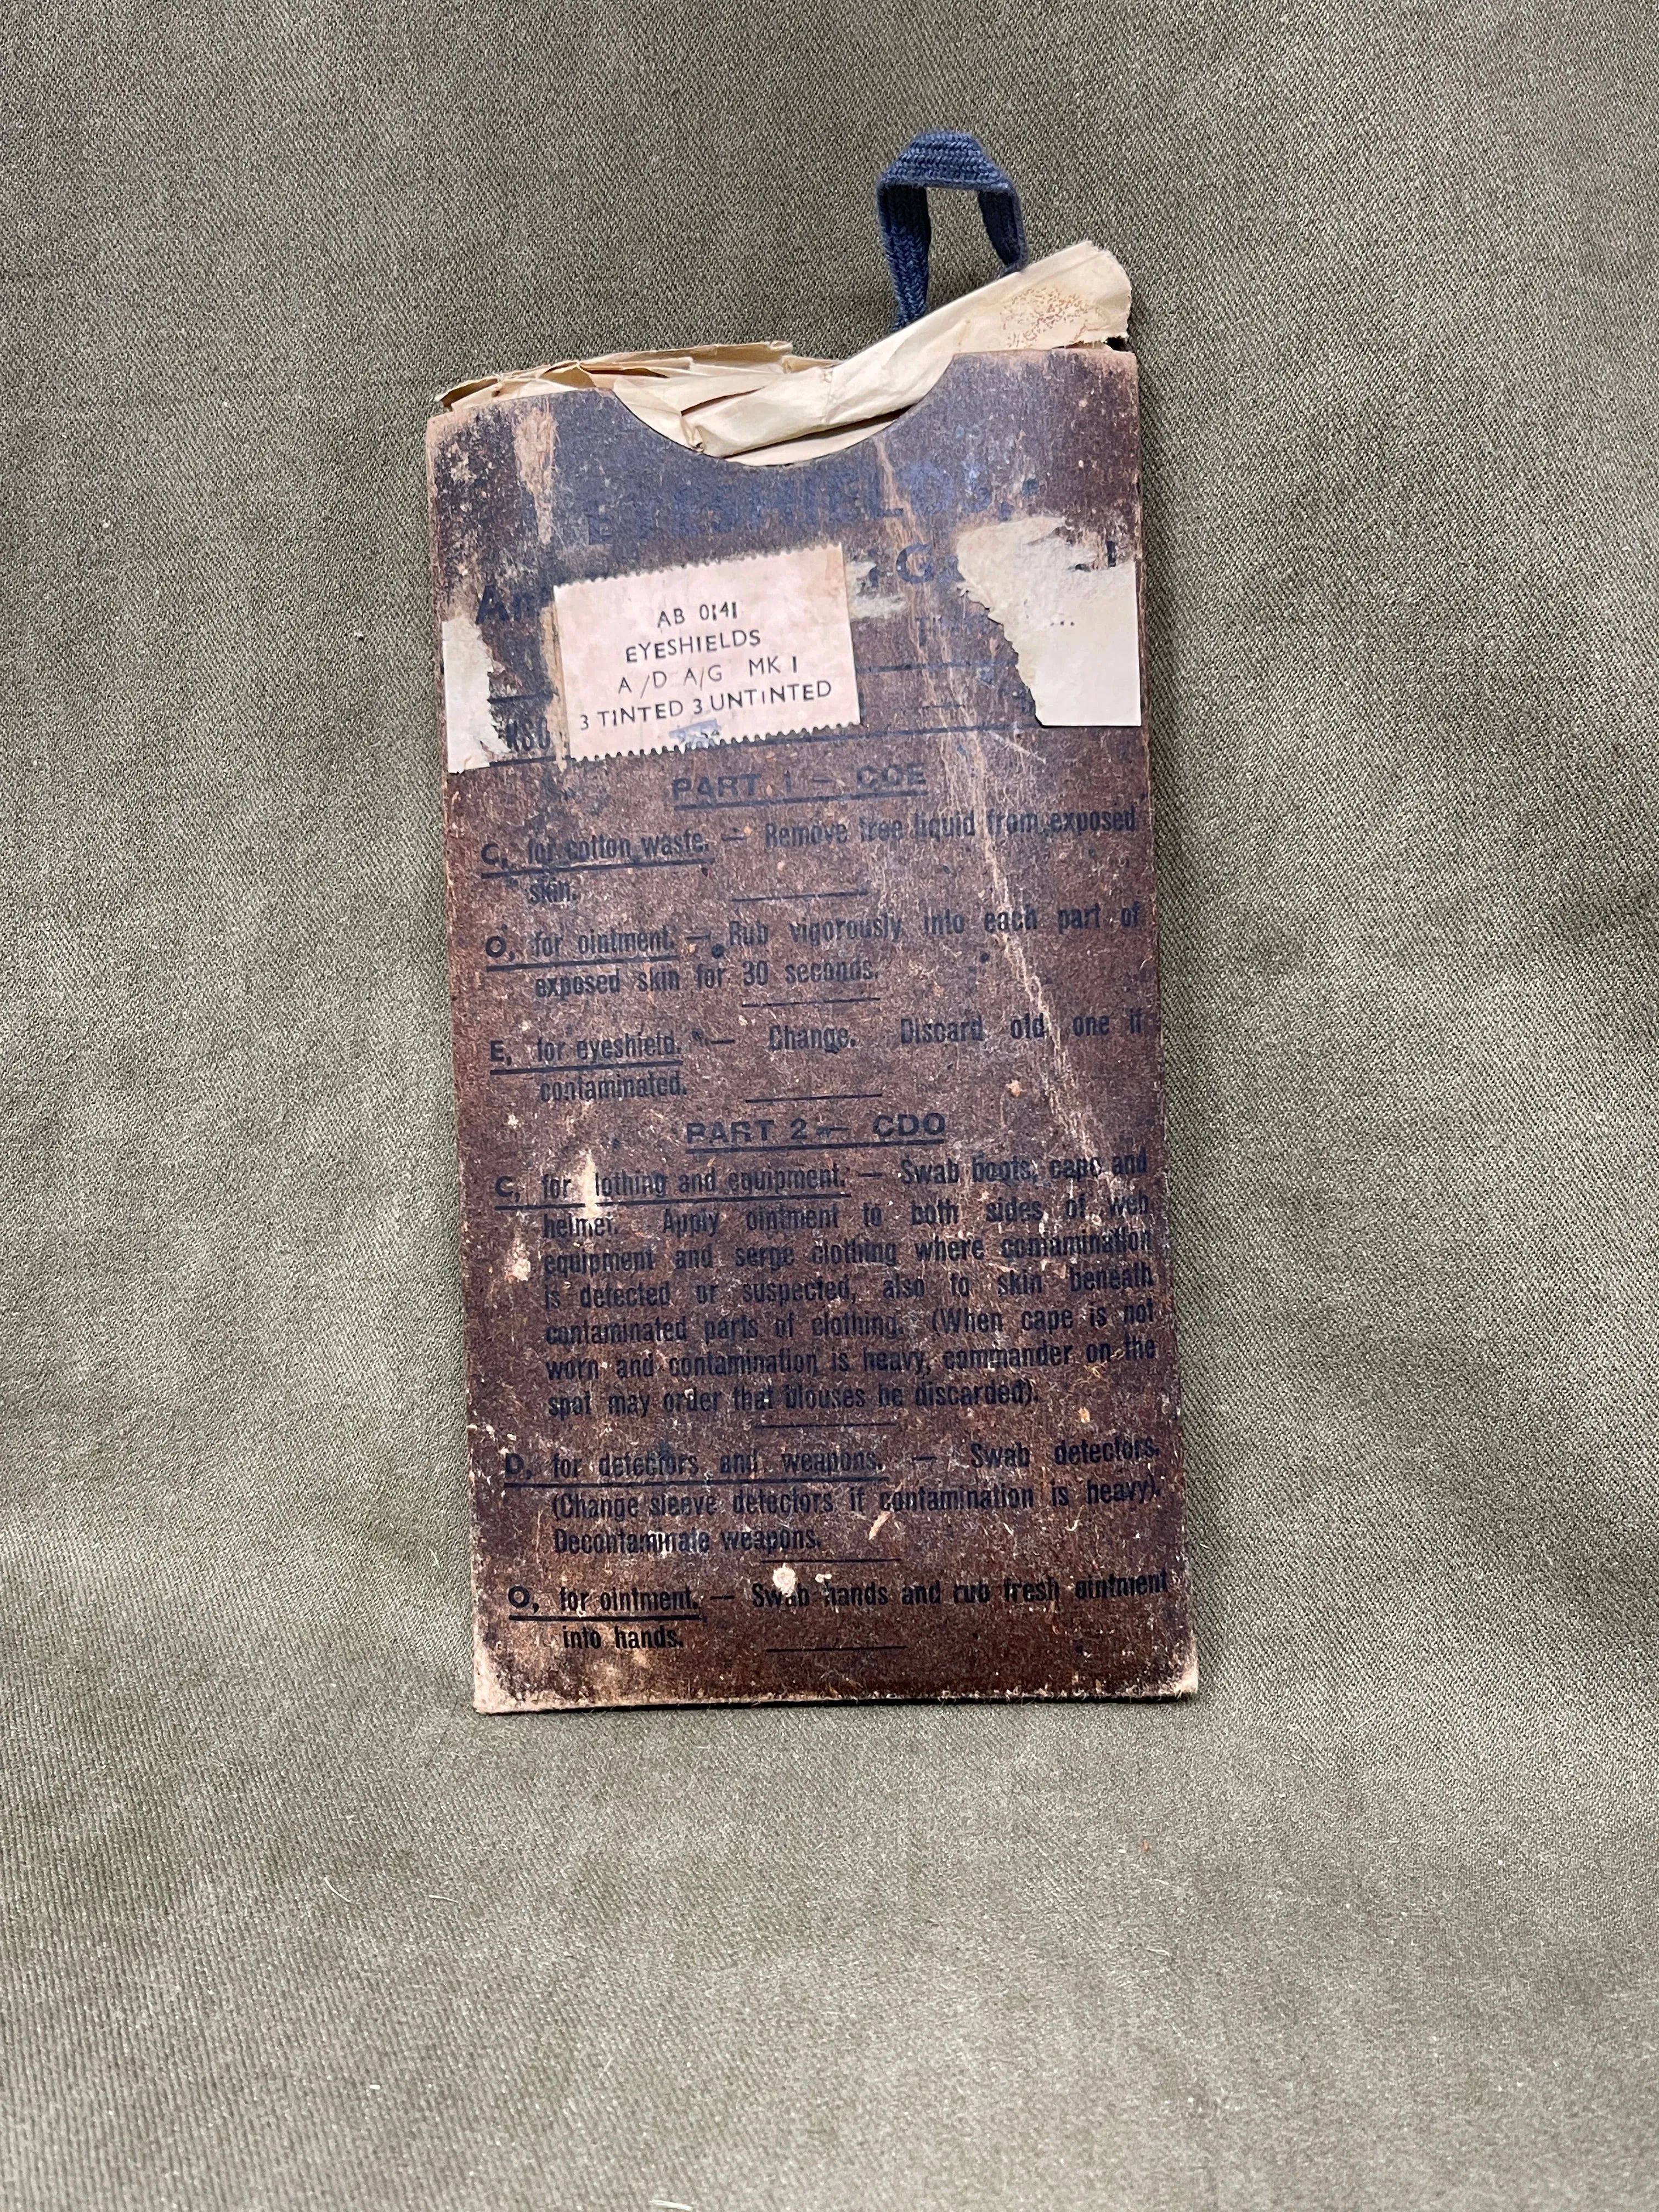 EYESHIELDS,
AB 0141
EYESHIELDS
A/D A/G MK I
3 TINTED 3 UNTINTED
PART 1 — COE
C, for cotton waste. — Remove free liquid from exposed
skin.
O, for ointment. — Rub vigorously into each part of
exposed skin for 30 seconds.
E, for eyeshield. — Change. Discard old one if
contaminated.
PART 2 — CDO
C, for clothing and equipment. — Swab boots, cape and
helmet. Apply ointment to both sides of web
equipment and serge clothing where contamination
is detected or suspected, also to skin beneath
contaminated parts of clothing. (When cape is not
worn and contamination is heavy, commander on the
spot may order that blouses be discarded).
D, for detectors and weapons. — Swab detectors.
(Change sleeve detectors if contamination is heavy).
Decontaminate weapons.
O, for ointment. — Swab hands and rub fresh ointment
into hands.